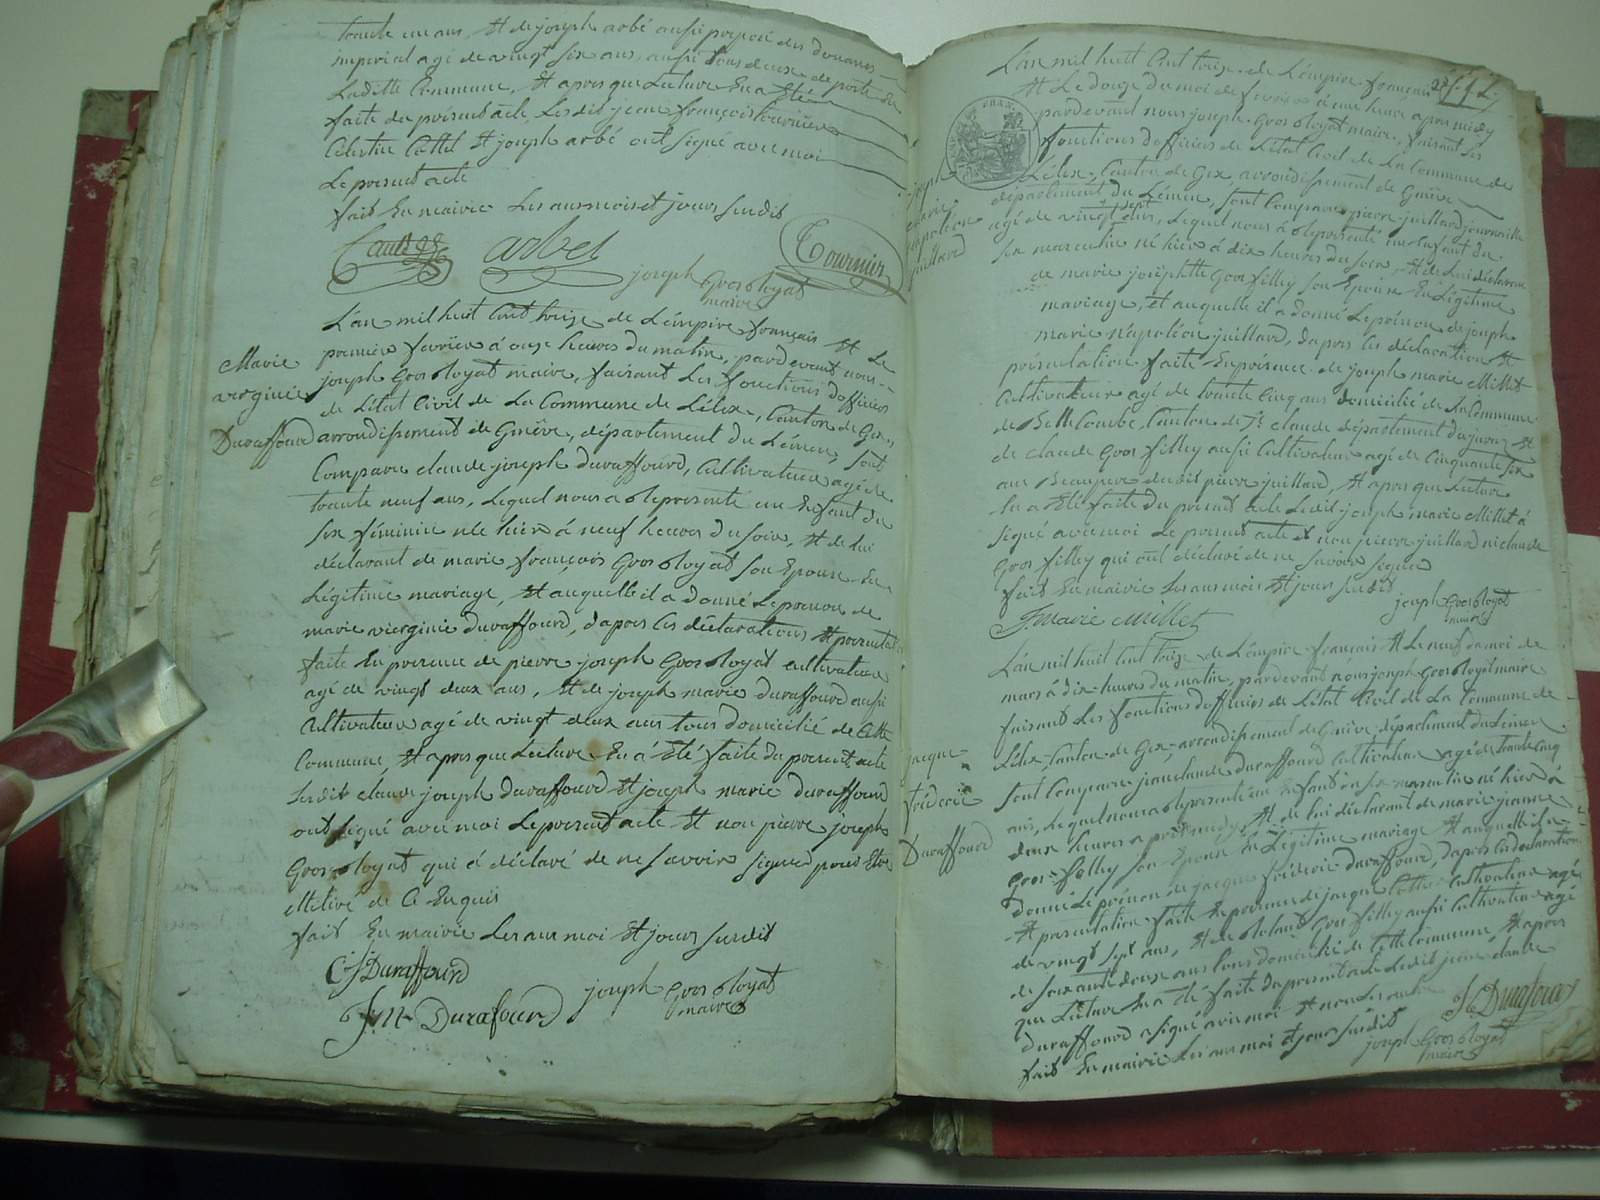 trante un ans, Et de joseph arbé aussi preposé des Douanes
imperial agé de vingt six ans, aussi tous deux de poste En
Laditte Commune, Et apres que Lecture En a Eté
faite du présent acte, Les dit jean françois tournier
Celestin Cattet Et joseph arbé ont signé avec moi
Le present acte
fait En mairie Les ans mois et jours susdit
arbel
Tournier
joseph Grosgloyat
maire
Marie
viergine
Duraffourd
L'an mil huit Cent treize de L'émpire français Et Le
premier fevrier á onze heures du matin, pardevant nous
joseph Grosgloyat maire, faisant Les fonctions d'officier
de L'état Civil de La Commune de Lélex, Canton de Gex,
arrondissement de Genêve, département du Léman, sont
Comparu claude joseph duraffourd, Cultivateur agé de
trante neuf ans, Lequel nous a Représenté un Enfant du
sex féminin née hier á neuf heures du soir, Et de lui
déclarant de marie françois Grosgloyat son Epouse En
Légitime mariage, Et auquelle il a donné Leprénon de
marie viergine duraffourd, d'apres les déclarations Et présentation
faite En présence de pierre joseph Grosgloyat cultivateur
agé de vingt deux ans, Et de joseph marie duraffourd aussi
Cultivateur agé de vingt deux ans tous domicilié de Cette
Commune, Et apres que Lecture En á Eté faite du present acte
Lesdit claude joseph duraffourd Et joseph marie duraffourd
ont signé avec moi Lepresent acte Et non pierre joseph
Grosgloyat qui á déclaré de ne savoir signer pour Etre
de Ce Enquis
fait En mairie Les ans moi Et jours susdit
C J Duraffourd
J M Durafourd
joseph Grosgloyat
maire
L'an mil huit Cent treize de L'émpire français
Et Le douze du moi de fevrier á une heure apres midy
pardevant nous joseph Grosgloyat maire, faisant Les
fonctions d'officier de L'état Civil de La Commune de
Lélex, Canton de Gex, arrondissement de Genêve
département du Léman, sont Comparu pierre juillard journaillé
agé de vingt sept ans, Lequel nous á Représenté un Enfant du
sex masculin né hier á dix heures du soir, Et de Lui déclarant
de marie josephtte Grosfilley son Epouse En Légitime
mariage, et auquelle il a donné Leprénon de joseph
marie napoléon juillard, d'apres les déclaration Et
présentation faite En présence de joseph marie Millet
Cultivateur agé de trante Cinq ans domicilié de La Commune
de Bellecombe, Canton de St claude département du jura, Et
de claude Grosfilley aussi Cultivateur agé de Cinquante six
ans Beaupere du dit pierre juillard, Et apres que Lecture
En a Eté faite du present acte Le dit joseph marie Millet á
signé avec moi Le present acte et non pierre juillard ni claude
Grosfilley qui ont déclaré de ne savoir signer
fait En mairie Les ans mois Et jours susdit
joseph
marie
napoléon
juillard
J marie millet
joseph Grosgloyat
maire
L'an mil huit Cent treize de L'émpire français Et Le neuf du moi de
mars á dix heures du matin, pardevant nous joseph Grosgloyat maire
faisant Les fonctions d'officier de L'état Civil de La Commune de
Lélex, Canton de Gex, arrondissement de Genève, département du Léman
sont Comparu jean claude duraffourd Cultivateur agé de trante Cinq
ans, Lequel nous a Representé un Enfant du sex masculin né hier á
deux heures apres midy, Et de lui déclarant de marie jeanne
Grosfilley son Epouse En Légitime mariage Et auquelle il a
donné Leprénon de jacque fréderic duraffourd, d'apres les déclaration
Et présentation faite En présence de jacque Cattet Cultivateur agé
de vingt sept ans, Et de Grosfilley aussi Cultivateur agé
de soixante douze ans tous domicilié de Cette Commune, Et apres
que Lecture En a Eté faite du present acte Le dit jean claude
duraffourd a signé avec moi Et non Les autres
fait En mairie Les ans moi Et jours susdit
jacque
fréderic
Duraffourd
J C Durafourd
joseph Grosgloyat
maire